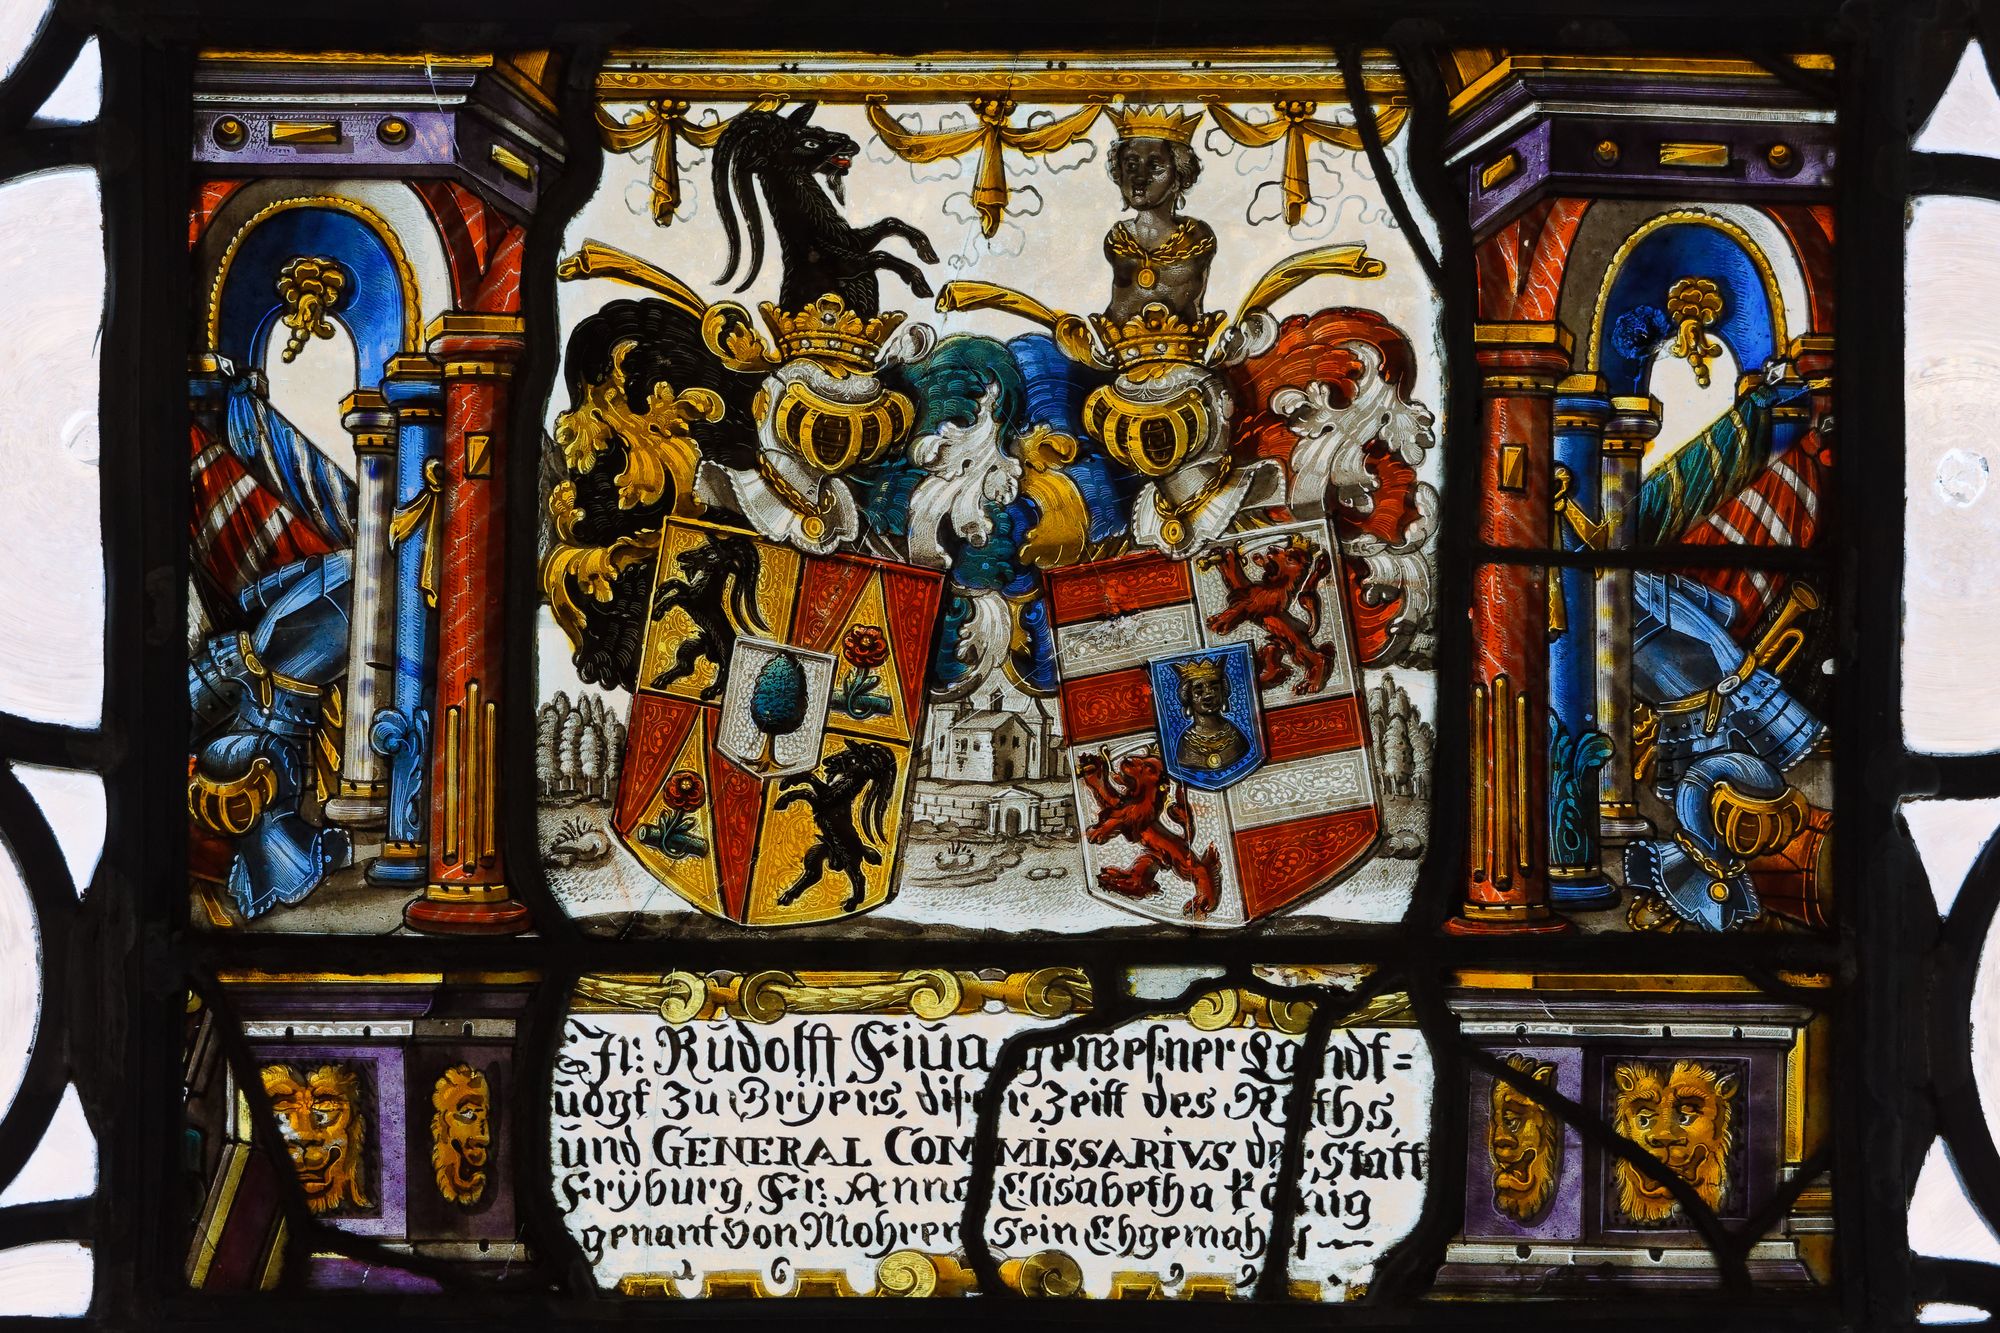 Jr: Rudolff Fiva gewesner Landt=
vogt Zu Gryers, diser Zeitt des Raths,
und GENERAL COMMISSARIVS der Statt
Fryburg, Fr: Anna Elisabetha König
genant von Mohren sein Ehgemahel
1 6 9 9